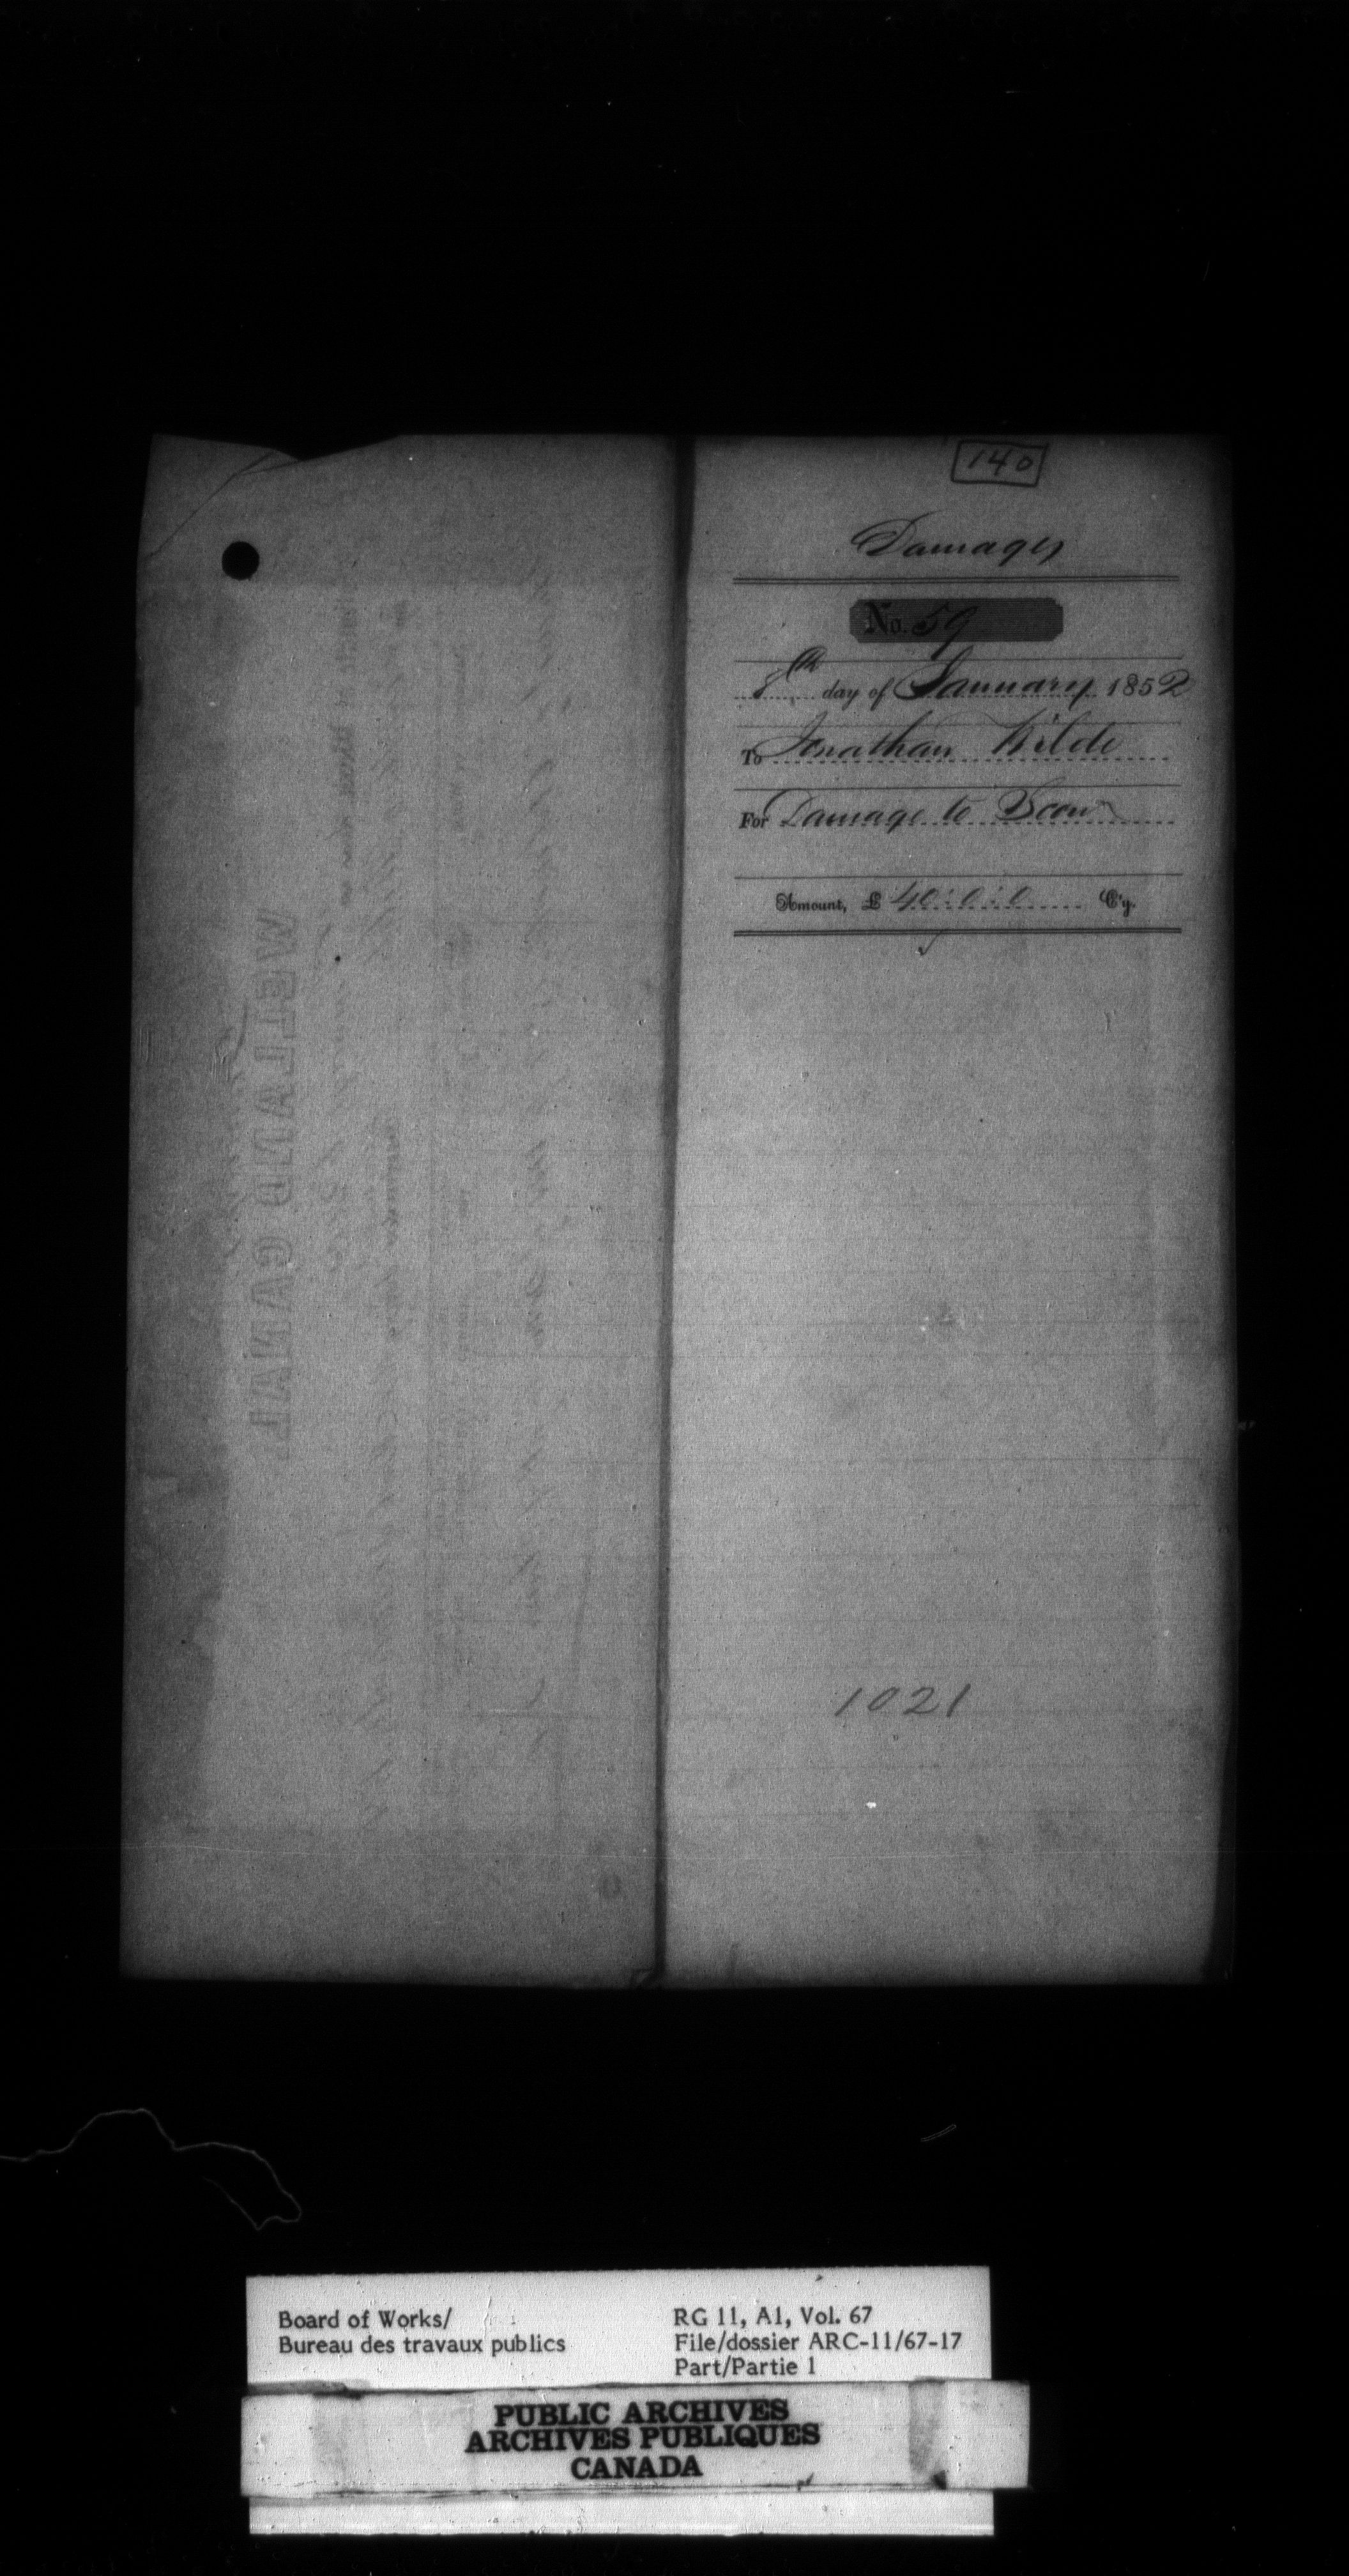 140
Damages
No. 59
8th day of January 1852
To Jonathan Wilde
For Damage to Scow
Amount, £ 40 : 0 : 0 C'y.
WELLAND CANAL
1021
Board of Works/
Bureau des travaux publics
RG 11, A1, Vol. 67
File/dossier ARC-11/67-17
Part/Partie 1
PUBLIC ARCHIVES
ARCHIVES PUBLIQUES
CANADA